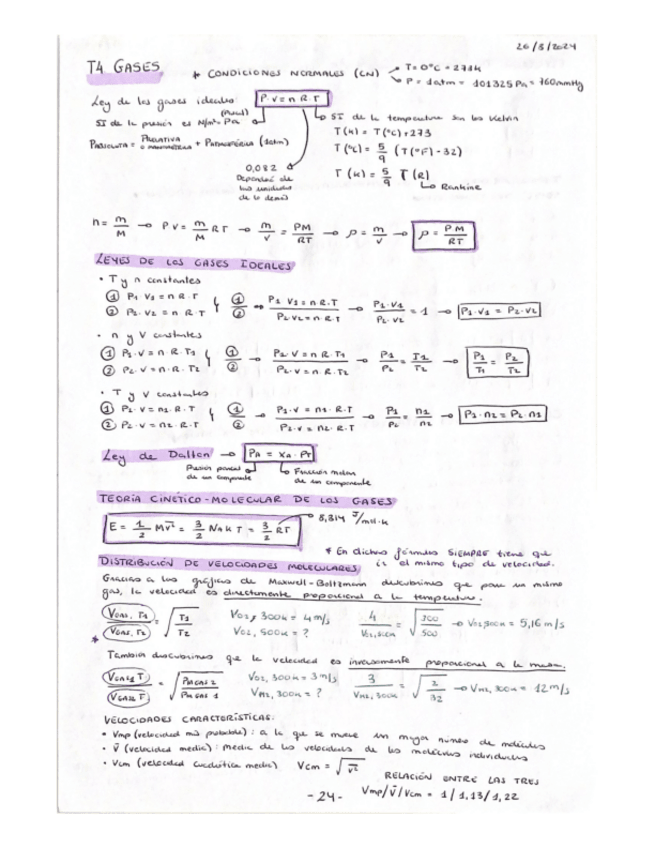 26/3/2024
T4 GASES
* CONDICIONES NORMALES (CN) → T = 0°C = 273K
→ P = 1atm = 101325 Pa = 760mmHg
Ley de los gases ideales P·V = n R·T
SI de la presión es N/m² = Pa (Pascal)
SI de la temperatura son los Kelvin
PABSOLUTA = PRELATIVA O MANOMÉTRICA + PATMOSFÉRICA (1atm)
T(K) = T(°C) + 273
T(°C) = 5/9 (T(°F) - 32)
T(K) = 5/9 T(R)
→ Rankine
0,082
Depende de
las unidades
de lo demás
n = m/M → P V = m/M RT → m/V = PM/RT → ρ = m/V → ρ = PM/RT
LEYES DE LOS GASES IDEALES
• T y n constantes
① P1·V1 = n R·T
② P2·V2 = n R·T
①/② → P1·V1 = n R·T / P2·V2 = n R·T → P1·V1 / P2·V2 = 1 → P1·V1 = P2·V2
• n y V constantes
① P1·V = n R·T1
② P2·V = n·R·T2
①/② → P1·V = n R·T1 / P2·V = n R·T2 → P1/P2 = T1/T2 → P1/T1 = P2/T2
• T y V constantes
① P1·V = n1·R·T
② P2·V = n2·R·T
①/② → P1·V = n1·R·T / P2·V = n2·R·T → P1/P2 = n1/n2 → P1·n2 = P2·n1
Ley de Dalton → PA = XA·PT
Presión parcial de un componente
Fracción molar de un componente
TEORÍA CINÉTICO-MOLECULAR DE LOS GASES
E = 1/2 M v̄² = 3/2 NA K T = 3/2 RT → 8,314 J/mol·K
* En dichas fórmulas SIEMPRE tiene que
ir el mismo tipo de velocidad.
DISTRIBUCIÓN DE VELOCIDADES MOLECULARES
Gracias a las gráficas de Maxwell-Boltzmann descubrimos que para un mismo
gas, la velocidad es directamente proporcional a la temperatura.
* VGAS, T1 / VGAS, T2 = √(T1/T2)
VO2, 300K = 4 m/s
VO2, 500K = ?
4 / VO2, 500K = √(300/500) → VO2, 500K = 5,16 m/s
También descubrimos que la velocidad es inversamente proporcional a la masa.
VGAS1 T / VGAS2 T = √(PM GAS 2 / PM GAS 1)
VO2, 300K = 3 m/s
VH2, 300K = ?
3 / VH2, 300K = √(2/32) → VH2, 300K = 12 m/s
VELOCIDADES CARACTERÍSTICAS:
• Vmp (velocidad más probable): a la que se mueve un mayor número de moléculas
• V̄ (velocidad media): media de las velocidades de las moléculas individuales
• Vcm (velocidad cuadrática media) Vcm = √v̄²
RELACIÓN ENTRE LAS TRES
Vmp/V̄/Vcm = 1/1,13/1,22
-24-